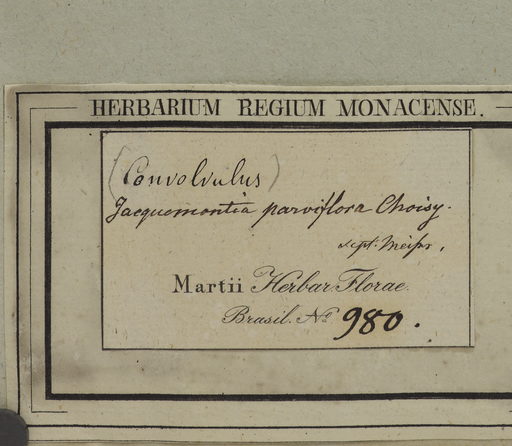 HERBARIUM REGIUM MONACENSE.
(Convolvulus)
Jacquemontia parviflora Choisy.
Martii Herbar. Florae
Brasil. No 980.